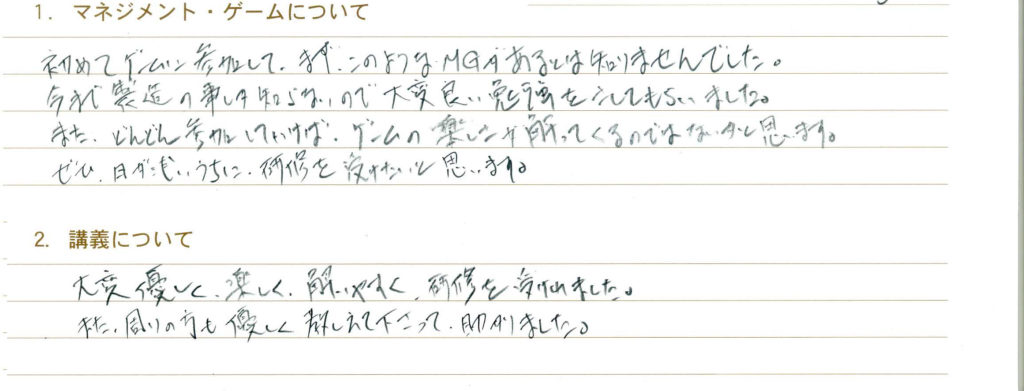 1. マネジメント・ゲームについて
初めてゲームに参加して、まず、このようなMGがあるとは知りませんでした。
今まで製造の事しか知らないので大変良い勉強をしてもらいました。
また、どんどん参加していけば、ゲームの楽しさが解ってくるのではないかと思います。
ぜひ、日が浅いうちに、研修を受けたいと思います。
2. 講義について
大変優しく、楽しく、解りやすく、研修を受けれました。
また、周りの方も優しく教しえて下さって、助かりました。